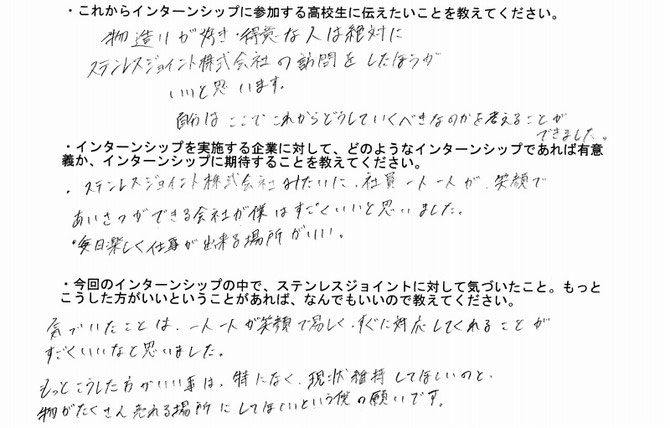 ・これからインターンシップに参加する高校生に伝えたいことを教えてください。
物造りが好き・得意な人は絶対に
ステンレスジョイント株式会社の訪問をしたほうが
いいと思います。
自分はここでこれからどうしていくべきなのかを考えることが
できました。
・インターンシップを実施する企業に対して、どのようなインターンシップであれば有意
義か、インターンシップに期待することを教えてください。
・ステンレスジョイント株式会社みたいに、社員一人一人が、笑顔で
あいさつができる会社が僕はすごくいいと思いました。
・毎日楽しく仕事が出来る場所がいい。
・今回のインターンシップの中で、ステンレスジョイントに対して気づいたこと。もっと
こうした方がいいということがあれば、なんでもいいので教えてください。
気づいたことは、一人一人が笑顔で易しく、すぐに対応してくれることが
すごくいいなと思いました。
もっとこうした方がいい事は、特になく、現状維持してほしいのと、
物がたくさん売れる場所にしてほしいという僕の願いです。